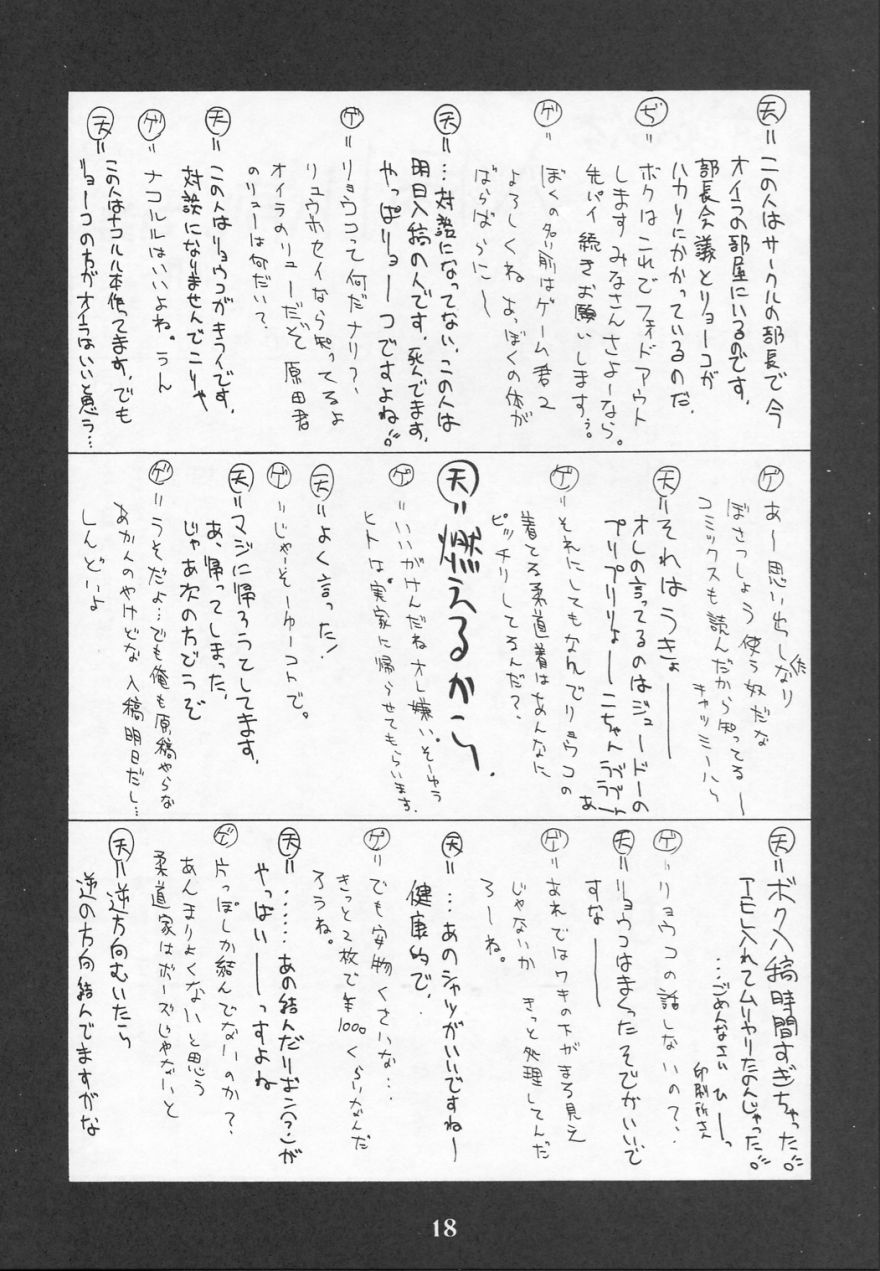 天＝この人はサークルの部長で今
オイラの部屋にいるのです。
部長会議とリョーコが
ハカリにかかっているのだ。
ぢ＝ボクはこれでフェイドアウト
します みなさんさよーなら。
先パイ続きお願いしますぅ。
ゲ＝ぼくの名前はゲーム君2
よろしくね あ、ぼくの体が
ばらばらに〜
天＝…対談になってない、この人は
明日入稿の人です、死んでます。
やっぱリョーコですよね
ゲ＝リョウコって何だナリ？、
リュウホセイなら知ってるよ
オイラのリューだぞ 原田君
のリューは何だい？
天＝この人はリョウコがキライです。
対談になりませんでこりゃ
ゲ＝ナコルルはいいよね。うん
天＝この人はナコルル本作ってます。でも
リョーコの方がオイラはいいと思う…
ゲ＝あー思い出しなり
ぼさつしょう 使う奴だな
コミックスも読んだから知ってるー
キャッミーハら
天＝それはうきょ―――
オレの言ってるのはジュードーの
プリプリリょーこちゃんううう
ゲ＝それにしてもなんでリョウコの
着てる柔道着はあんなに
ピッチリしてるんだ？、
天＝燃えるから。
ゲ＝いいがげんだねオレ嫌いそーゆう
ヒトは。実家に帰らせてもらいます。
天＝よく言った！
ゲ＝じゃーそーゆーコトで。
天＝マジに帰ろうてしてます。
あ、帰ってしまった、
じゃあ次の方どうぞ
ゲ＝うそだよ…でも俺も原稿やらな
あかんのやけどな 入稿明日だし…
しんどいよ
天＝ボク入稿時間すぎちゃった
アモレ入れてムリヤリたのんじゃった
…ごめんなさい ひーっ
印刷所さん
ゲ＝リョウコの話しないので、、
天＝リョウコはまくったそでがいいで
すな―――
ゲ＝あれではワキの下がまる見え
じゃないか きっと処理してんだ
ろーね。
天＝…あのシャツがいいですねー
健康的で、
ゲ＝でも安物くさいな…
きっと2枚で￥1000くらいなんだ
ろうね。
天＝……あの結んだリボン(？)が
やっぱい――っすよね
ゲ＝片っぽしか結んでないのか？、
あんまりよくないと思う
柔道家はボーズじゃないと
天＝逆方向むいたら
逆の方向結んでますがな
18